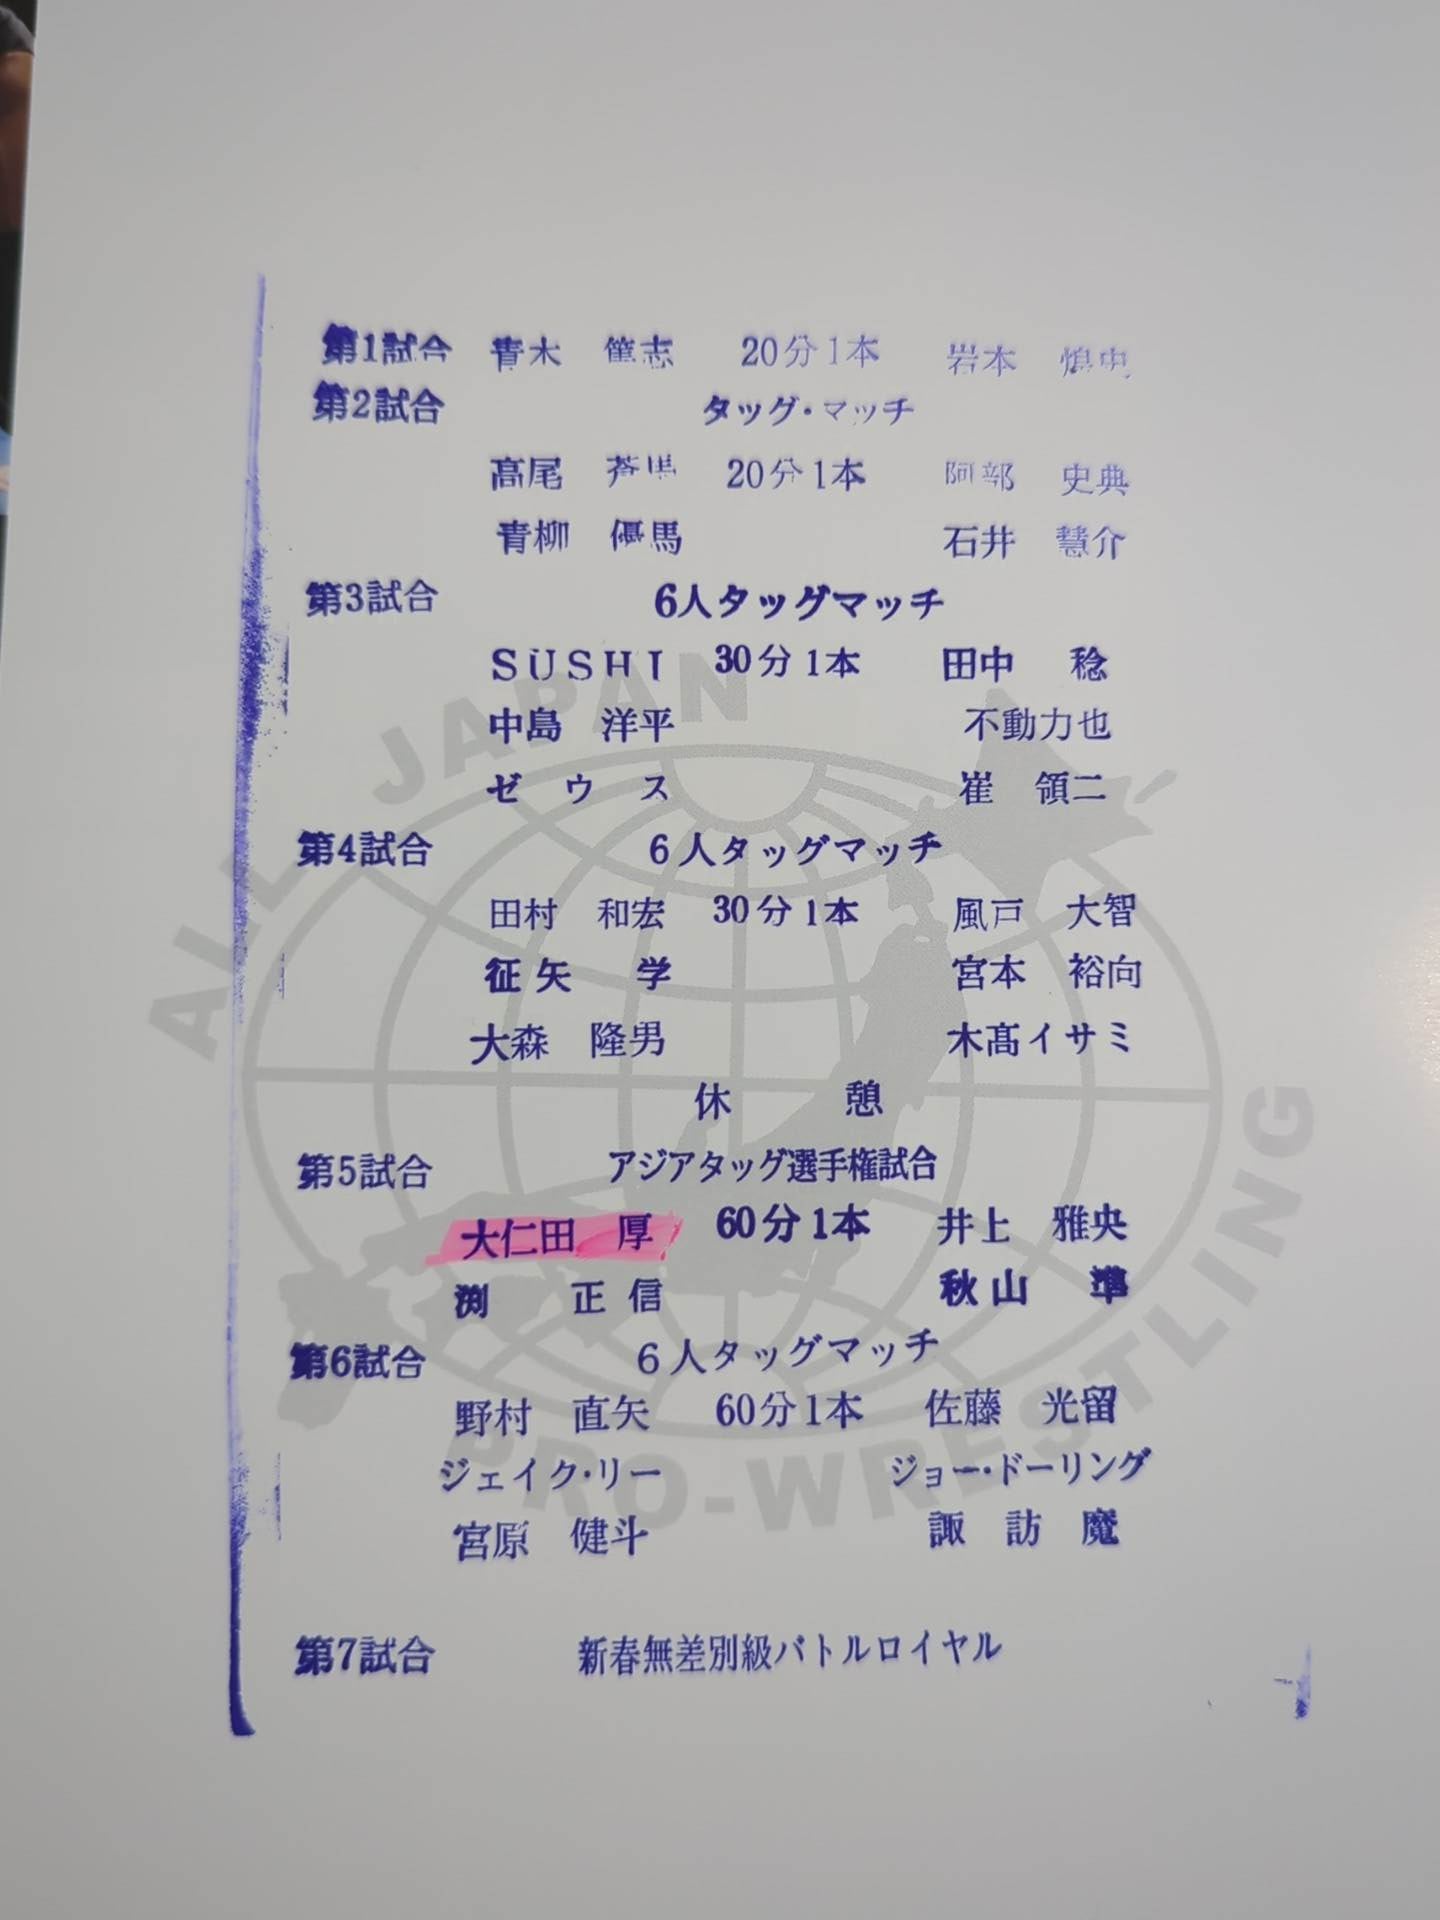 第1試合 青木 篤志 20分1本 岩本 煌史
第2試合 タッグ・マッチ
高尾 蒼馬 20分1本 阿部 史典
青柳 優馬 石井 慧介
第3試合 6人タッグマッチ
SUSHI 30分1本 田中 稔
中島 洋平 不動力也
ゼウス 崔 領二
第4試合 6人タッグマッチ
田村 和宏 30分1本 風戸 大智
征矢 学 宮本 裕向
大森 隆男 木髙イサミ
休憩
第5試合 アジアタッグ選手権試合
大仁田 厚 60分1本 井上 雅央
渕 正信 秋山 準
第6試合 6人タッグマッチ
野村 直矢 60分1本 佐藤 光留
ジェイク・リー ジョー・ドーリング
宮原 健斗 諏訪魔
第7試合 新春無差別級バトルロイヤル
ALL JAPAN PRO-WRESTLING